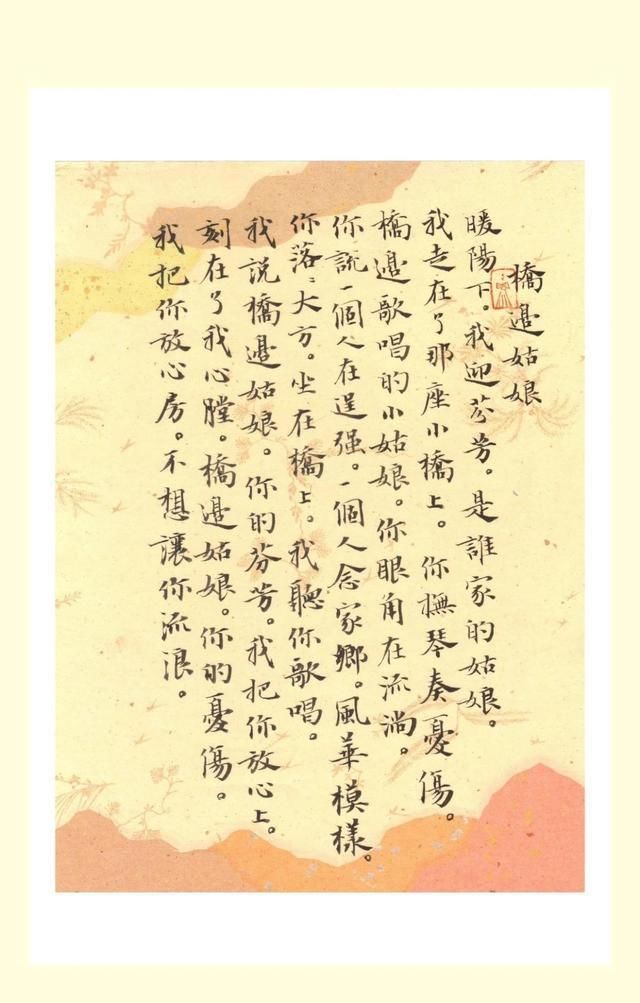 橋邉姑娘
暖陽下。我迎芬芳。是誰家的姑娘。
我走在了那座小橋上。你撫琴奏憂傷。
橋邉歌唱的小姑娘。你眼角在流淌。
你説一個人在逞强。一個人念家鄉。風華模樣。
你落〻大方。坐在橋上。我聽你歌唱。
我説橋邉姑娘。你的芬芳。我把你放心上。
刻在了我心膛。橋邉姑娘。你的憂傷。
我把你放心房。不想讓你流浪。